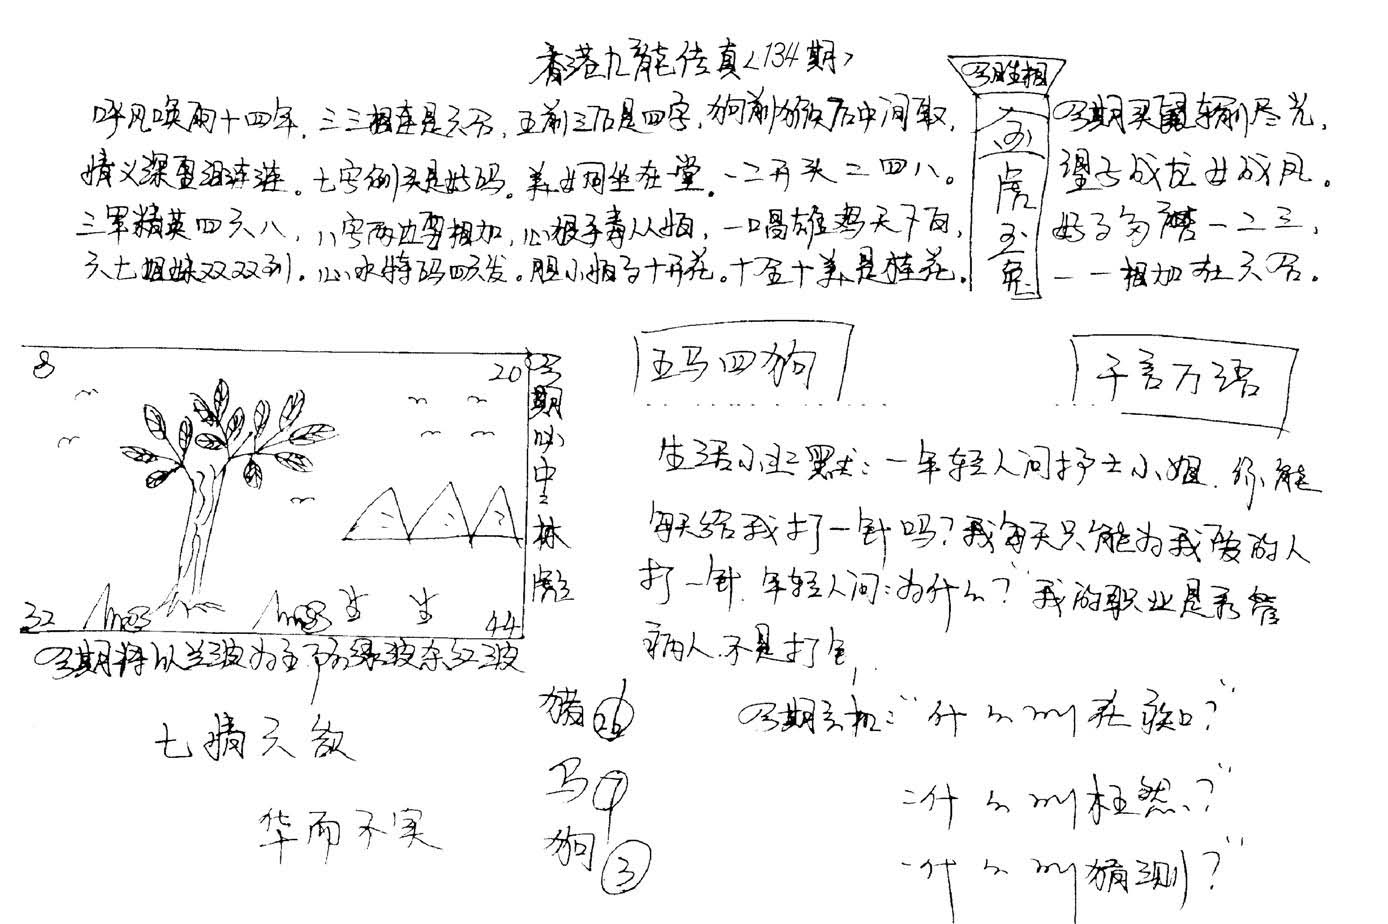 香港九龍传真<134期>
今期生相
金
虎
玉
兔
呼风唤雨十四年，三三相连是六合，五前三后是四字，狗前猴后中间取，
今期买属输剥尽光，
情义深重泪涟涟。七字例头是好码。美女同坐在堂。一二开头二四八。
望子成龙女成凤。
三军精英四六八，八字两边要相加，心狠手毒从，一唱雄鸡天下白，
好了多磨一二三，
六七姐妹双双到。心水特码四六发。胆小怕了十开花。十全十美是桂花。
一一相加在六合。
8
20
32
44
今期必中
林
彪
五马四狗
千言万语
生活小幽默：一年轻人问护士小姐，你能
每天给我打一针吗？我每天只能为我爱的人
打一针，年轻人问：为什么？我的职业是看管
病人，不是打针，
今期将以兰波为主下防绿波杀红波
七情六欲
华而不实
猪 26
马 9
狗 3
今期玄机："什么叫在"？"
"什么叫枉然？"
"什么叫猜测？"